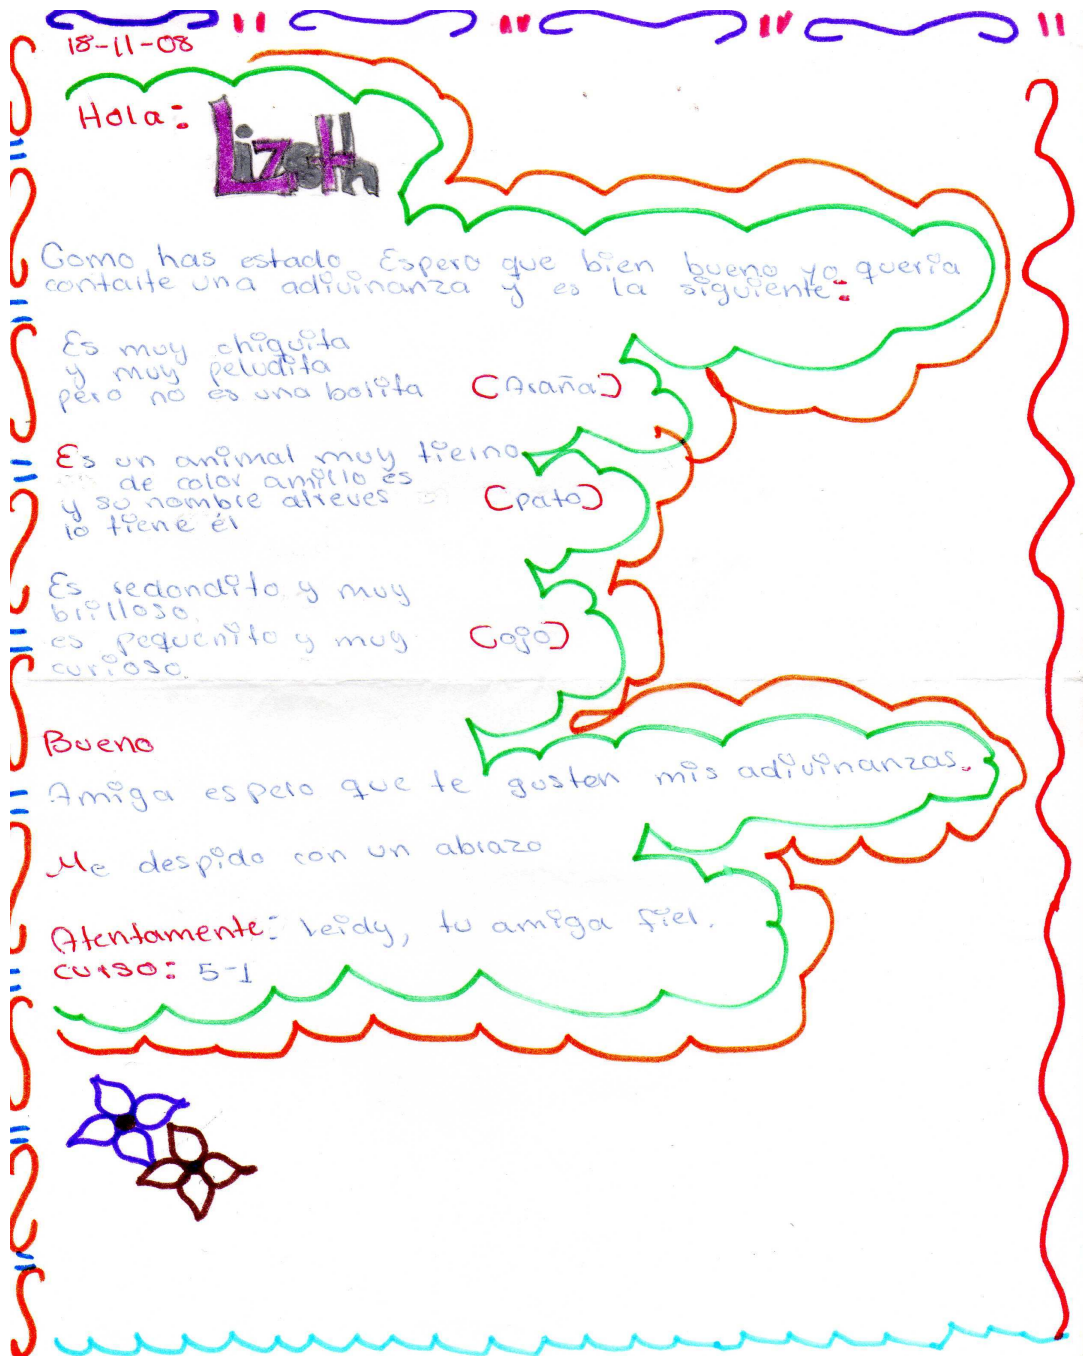 18-11-08
Hola: Lizeth
Como has estado Espero que bien bueno yo quería
contarte una adivinanza y es la siguiente:
Es muy chiquita
y muy peludita
pero no es una bolita (Araña)
Es un animal muy tierno
de color amillo es
y su nombre alreves (pato)
lo tiene él
Es redondito y muy
brilloso,
es pequeñito y muy (ojo)
curioso.
Bueno
Amiga espero que te gusten mis adivinanzas.
Me despido con un abrazo
Atentamente: Leidy, tu amiga fiel.
curso: 5-1